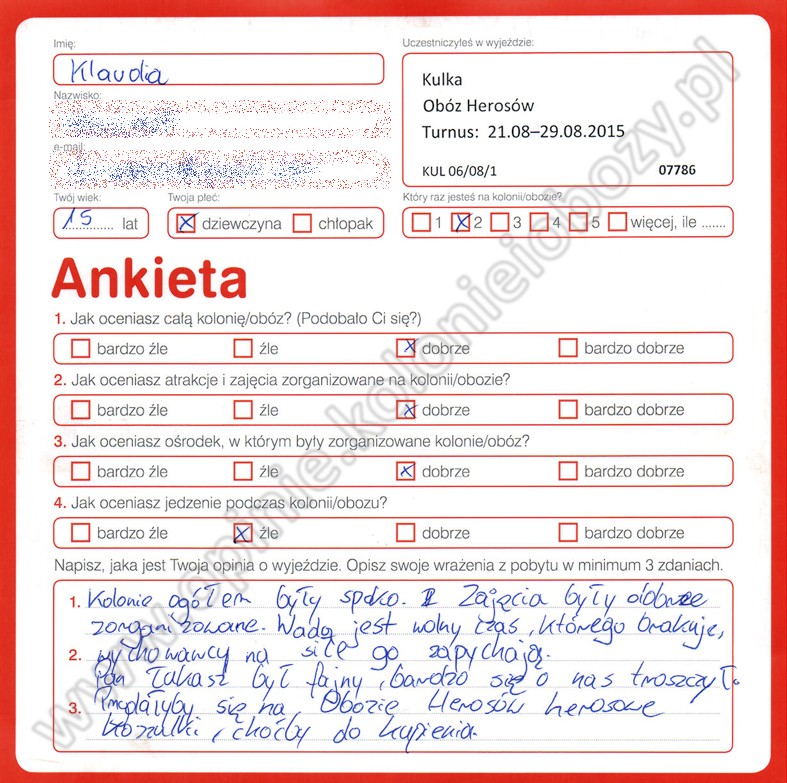 Imię:
Klaudia
Nazwisko:
e-mail:
Uczestniczyłeś w wyjeździe:
Kulka
Obóz Herosów
Turnus: 21.08–29.08.2015
KUL 06/08/1 07786
Twój wiek:
15 lat
Twoja płeć:
dziewczyna chłopak
Który raz jesteś na kolonii/obozie?
1 2 3 4 5 więcej, ile .......
Ankieta
1. Jak oceniasz całą kolonię/obóz? (Podobało Ci się?)
bardzo źle źle dobrze bardzo dobrze
2. Jak oceniasz atrakcje i zajęcia zorganizowane na kolonii/obozie?
bardzo źle źle dobrze bardzo dobrze
3. Jak oceniasz ośrodek, w którym były zorganizowane kolonie/obóz?
bardzo źle źle dobrze bardzo dobrze
4. Jak oceniasz jedzenie podczas kolonii/obozu?
bardzo źle źle dobrze bardzo dobrze
Napisz, jaka jest Twoja opinia o wyjeździe. Opisz swoje wrażenia z pobytu w minimum 3 zdaniach.
1. Kolonie ogółem były spoko. Zajęcia były dobrze
zorganizowane. Wadą jest wolny czas, którego brakuje,
2. wychowawcy na siłe go zapychają.
Pan Łukasz był fajny, bardzo się o nas troszczył.
3. Przydałyby się na Obozie Herosów herosowe
koszulki, choćby do kupienia.
www.opinie.kolonieiobozy.pl